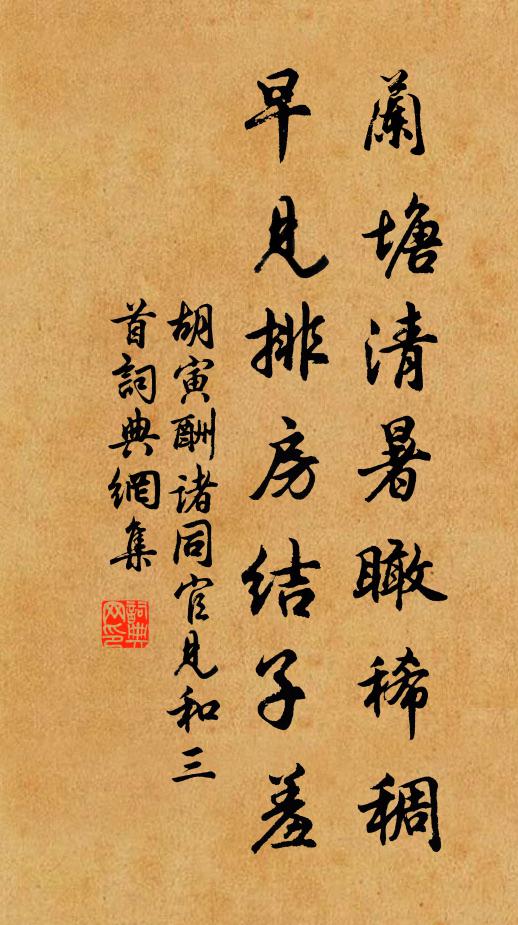 蘭塘清暑瞰稀稠
早見排房結子羞
胡寅酬诸同官見和三
首詞典網集
詞典
网印